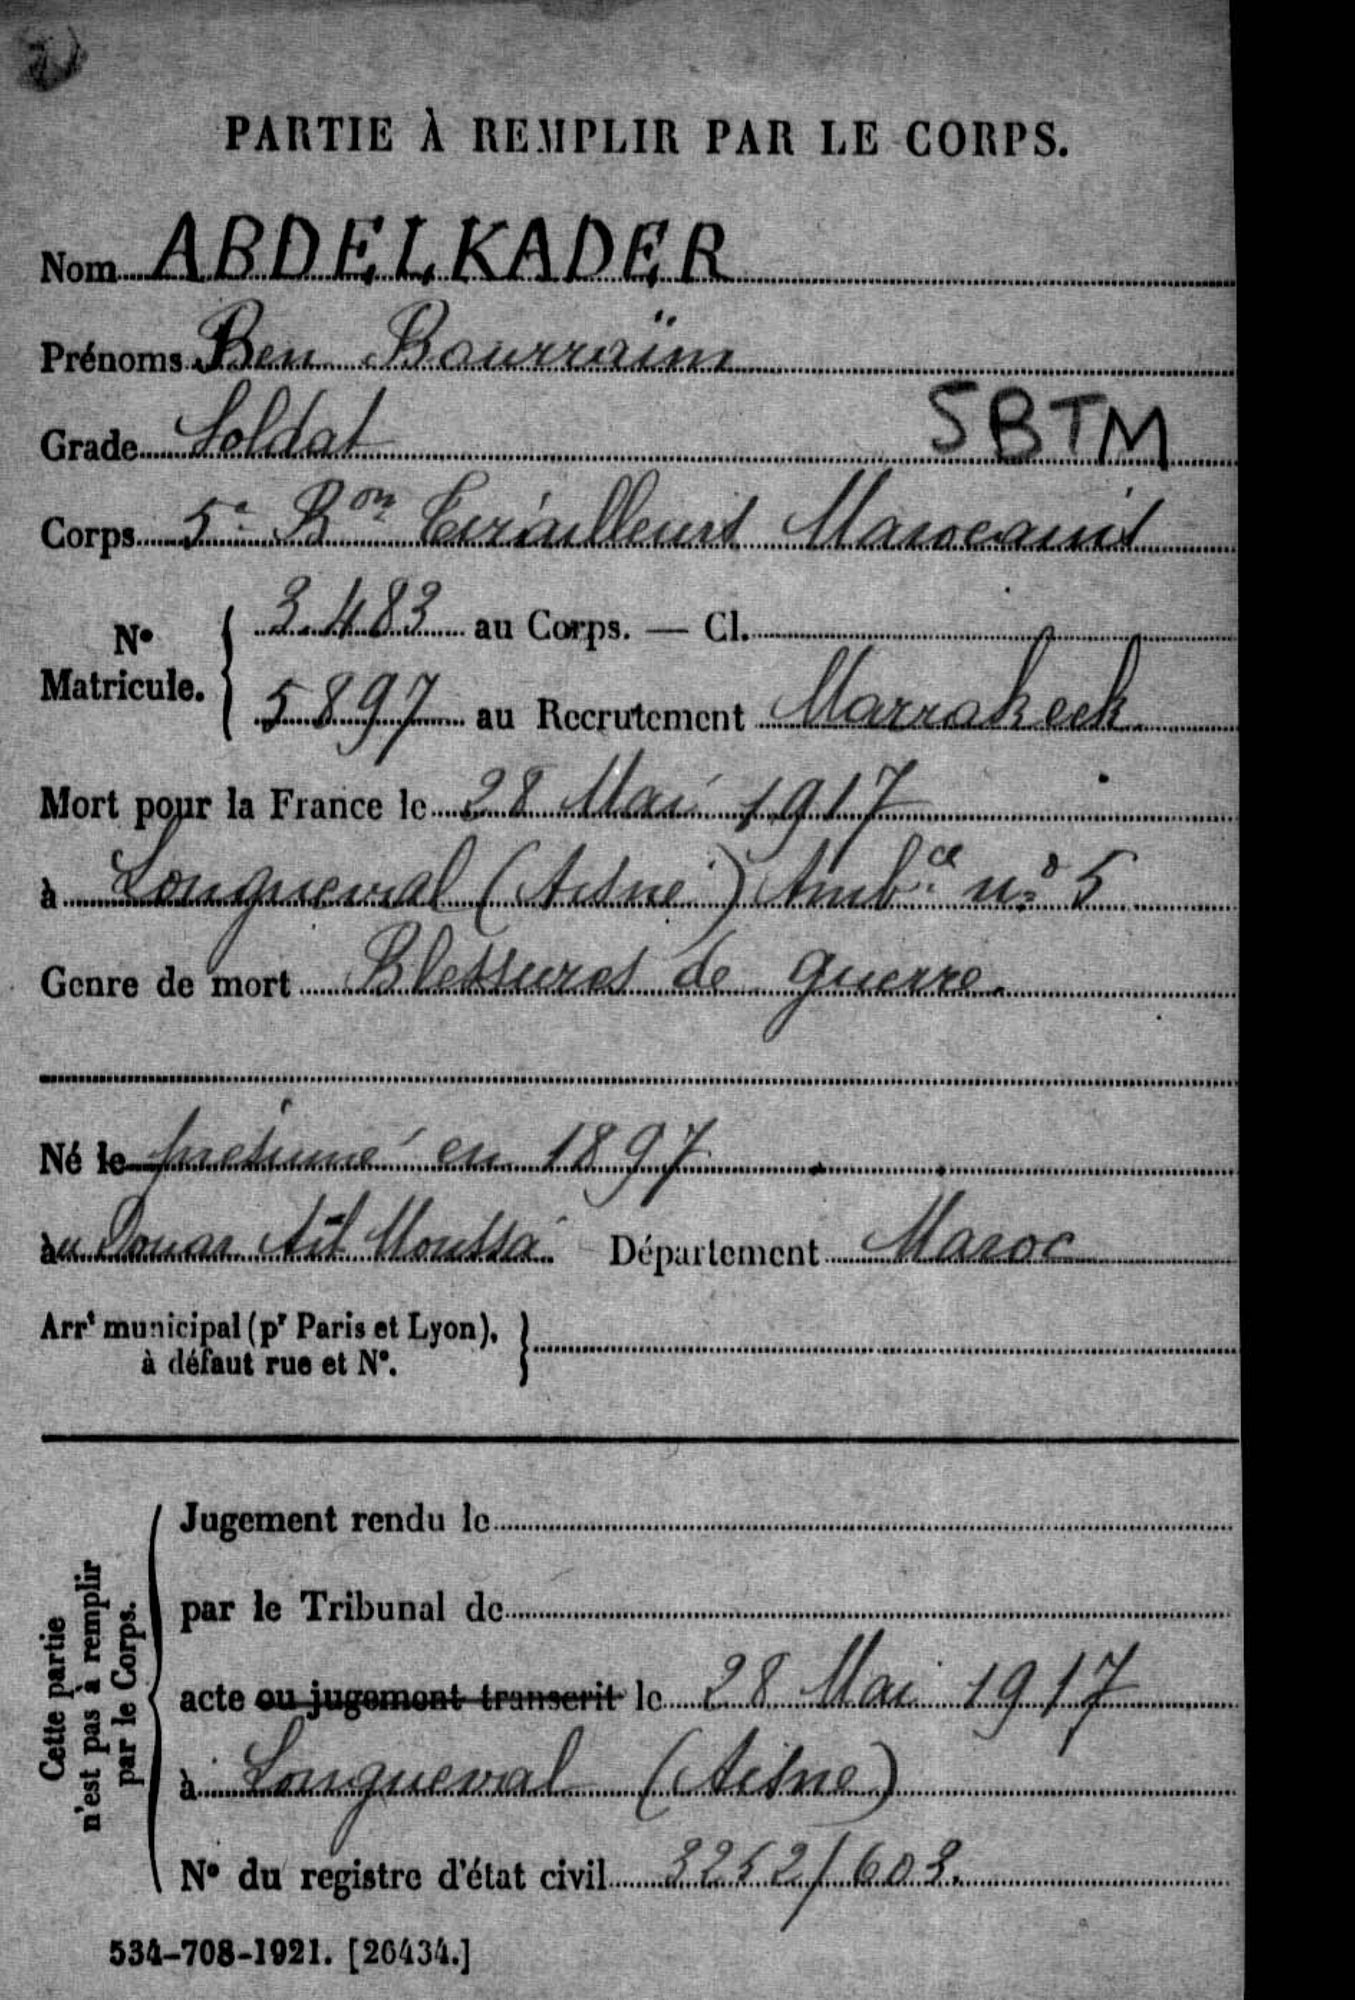 PARTIE À REMPLIR PAR LE CORPS.
Nom ABDELKADER
Prénoms Ben Bourraïm
Grade Soldat
5BTM
Corps 5e Bon Tirailleurs Marocains
N° Matricule. { 3.483 au Corps. — Cl.
5897 au Recrutement Marrakech
Mort pour la France le 28 Mai 1917
à Longueval (Aisne) Ambce n° 5
Genre de mort Blessures de guerre.
Né le présumé en 1897
au Douar Aït Moussa Département Maroc
Arrt municipal (pr Paris et Lyon),
à défaut rue et N°.
Cette partie
n'est pas à remplir
par le Corps.
Jugement rendu le
par le Tribunal de
acte ou jugement transcrit le 28 Mai 1917
à Longueval (Aisne)
N° du registre d'état civil 3252/603.
534-708-1921. [26434.]